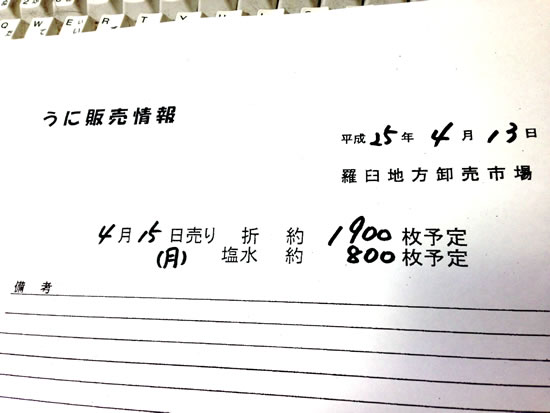 Q W E R T Y U
うに販売情報
平成25年4月13日
羅臼地方卸売市場
4月15日売り 折 約 1900枚予定
(月) 塩水 約 800枚予定
備考